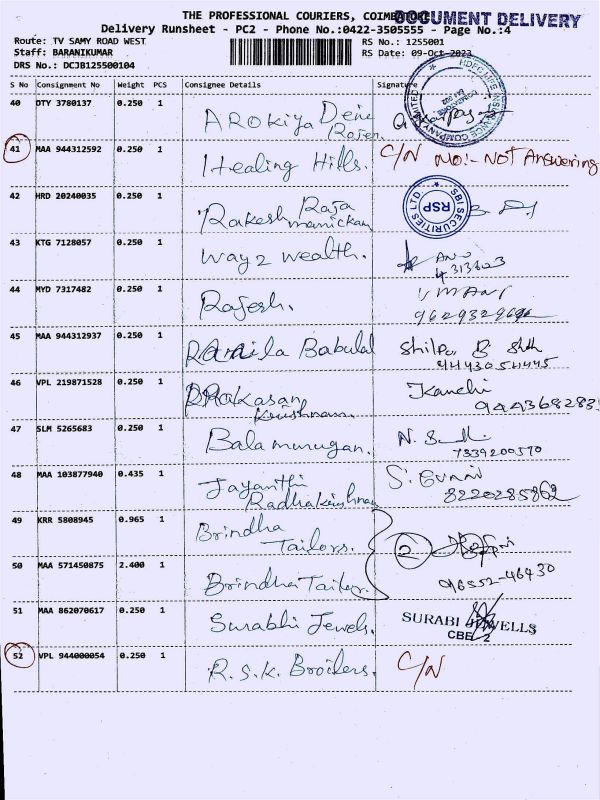 THE PROFESSIONAL COURIERS, COIMBATORE
DOCUMENT DELIVERY
Delivery Runsheet - PC2 - Phone No.:0422-3505555 - Page No.:4
Route: TV SAMY ROAD WEST
RS No.: 1255001
Staff: BARANIKUMAR
RS Date: 09-Oct-2023
DRS No.: DCJB125500104
S No Consignment No Weight PCS Consignee Details Signature
40 DTY 3780137 0.250 1 AROKIYA
41 MAA 944312592 0.250 1 Healing Hills. C/N No:- Not Answering
42 HRD 20240035 0.250 1 Rakesh Raja manickam SBI SECURITIES LTD. RSP
43 KTG 7128057 0.250 1 way 2 wealth.
44 MYD 7317482 0.250 1 Rajesh.
45 MAA 944312937 0.250 1 Babulal Shilpa B
46 VPL 219871528 0.250 1 Kanchi
47 SLM 5265683 0.250 1 Balamurugan. 7339200570
48 MAA 103877940 0.435 1 Jayanthi Radhakrishnan 8220285862
49 KRR 5808945 0.965 1 Brindha Tailors.
50 MAA 571450875 2.400 1 Brindha Tailor. 96552-46430
51 MAA 862070617 0.250 1 Surabhi Jewels. SURABI JEWELLS
CBE-2
52 VPL 944000054 0.250 1 R.S.K. Broilers. C/N